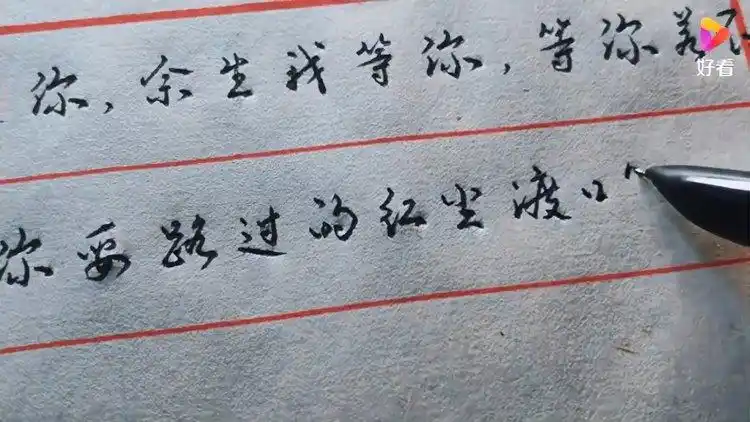 你，余生我等你，等你若
你要路过的红尘渡口
好看